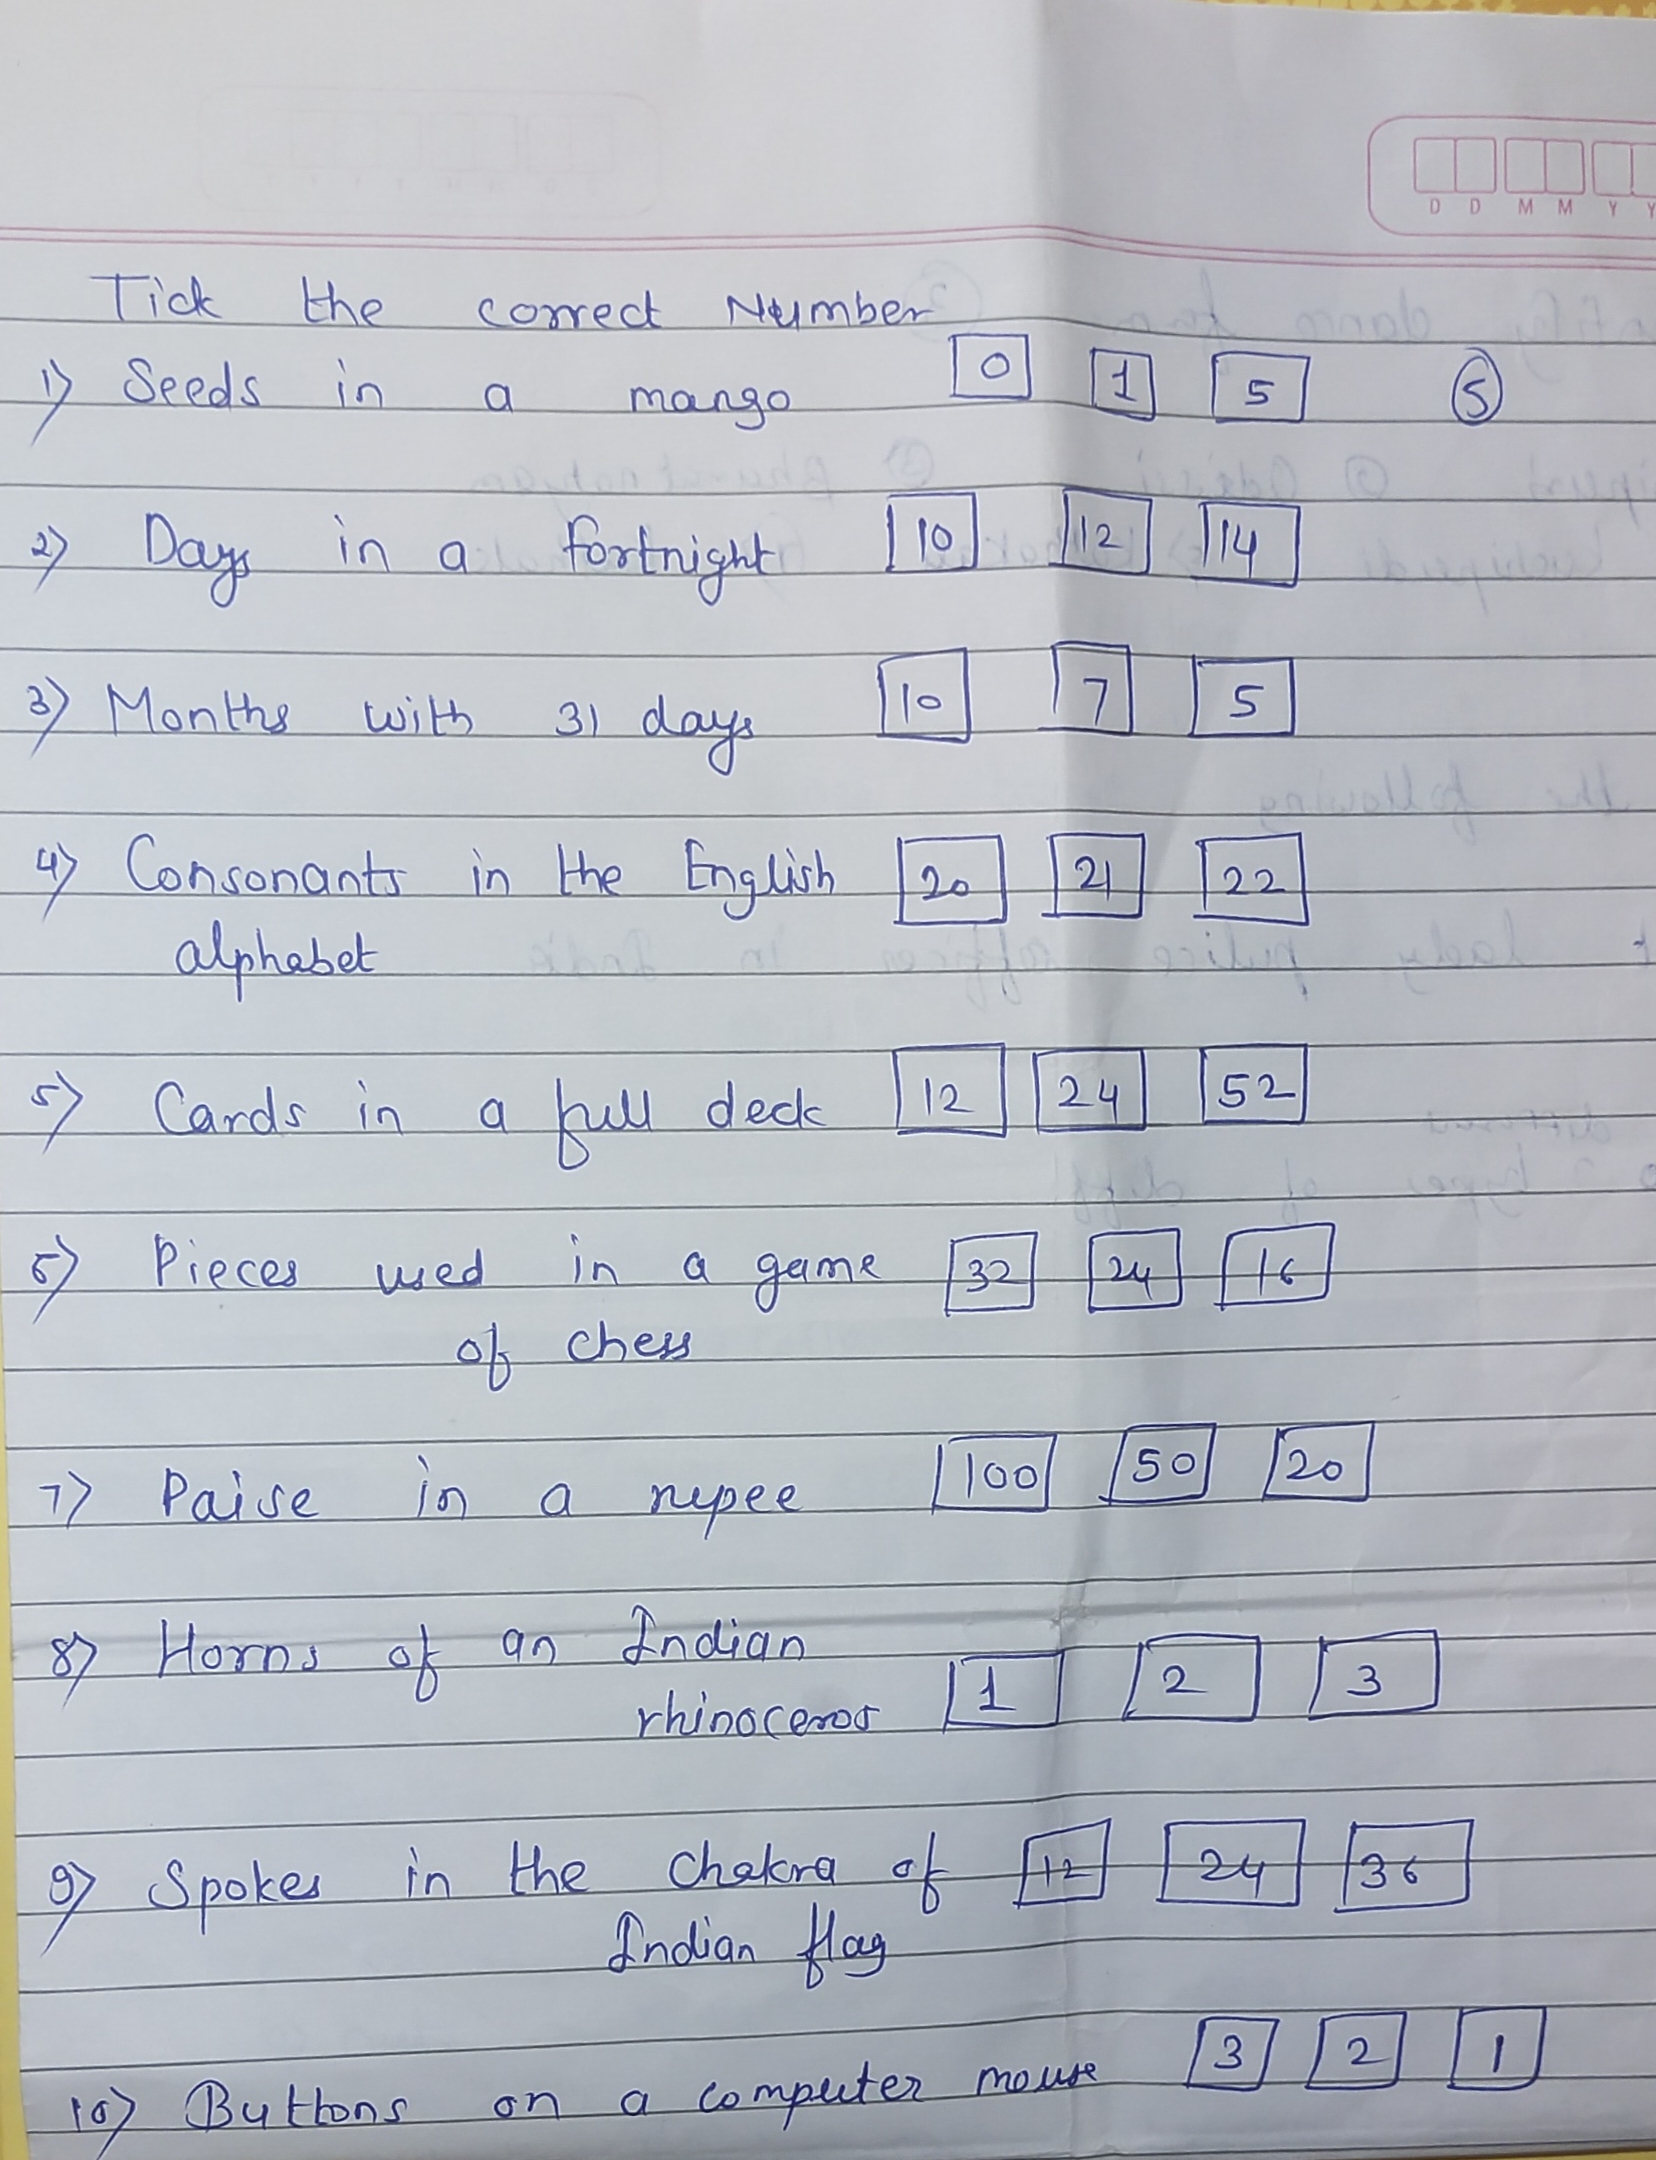 D D M M Y Y
Tick the correct Number
1) Seeds in a mango 0 1 5 5
2) Days in a fortnight 10 12 14
3) Months with 31 days 10 7 5
4) Consonants in the English 20 21 22
alphabet
5) Cards in a full deck 12 24 52
6) Pieces used in a game 32 24 16
of chess
7) Paise in a rupee 100 50 20
8) Horns of an Indian
rhinoceros 1 2 3
9) Spokes in the Chakra of 12 24 36
Indian flag
10) Buttons on a computer mouse 3 2 1